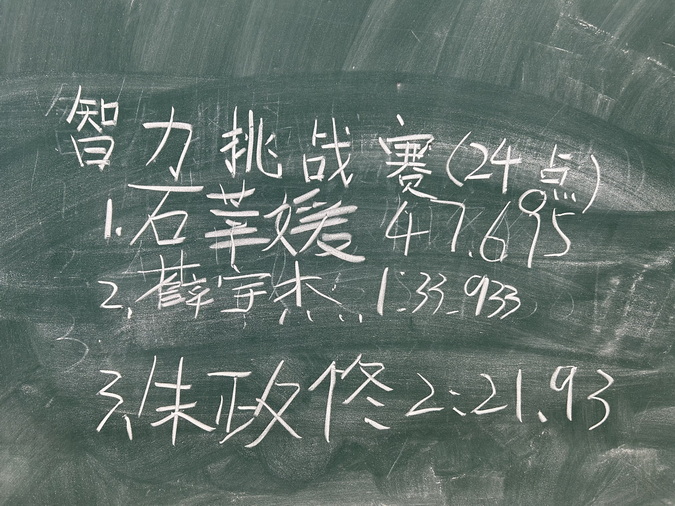 智力挑战赛(24点)
1.石莘媛 47.695
2.薛宇杰 1:33.933
3.朱政修 2:21.93